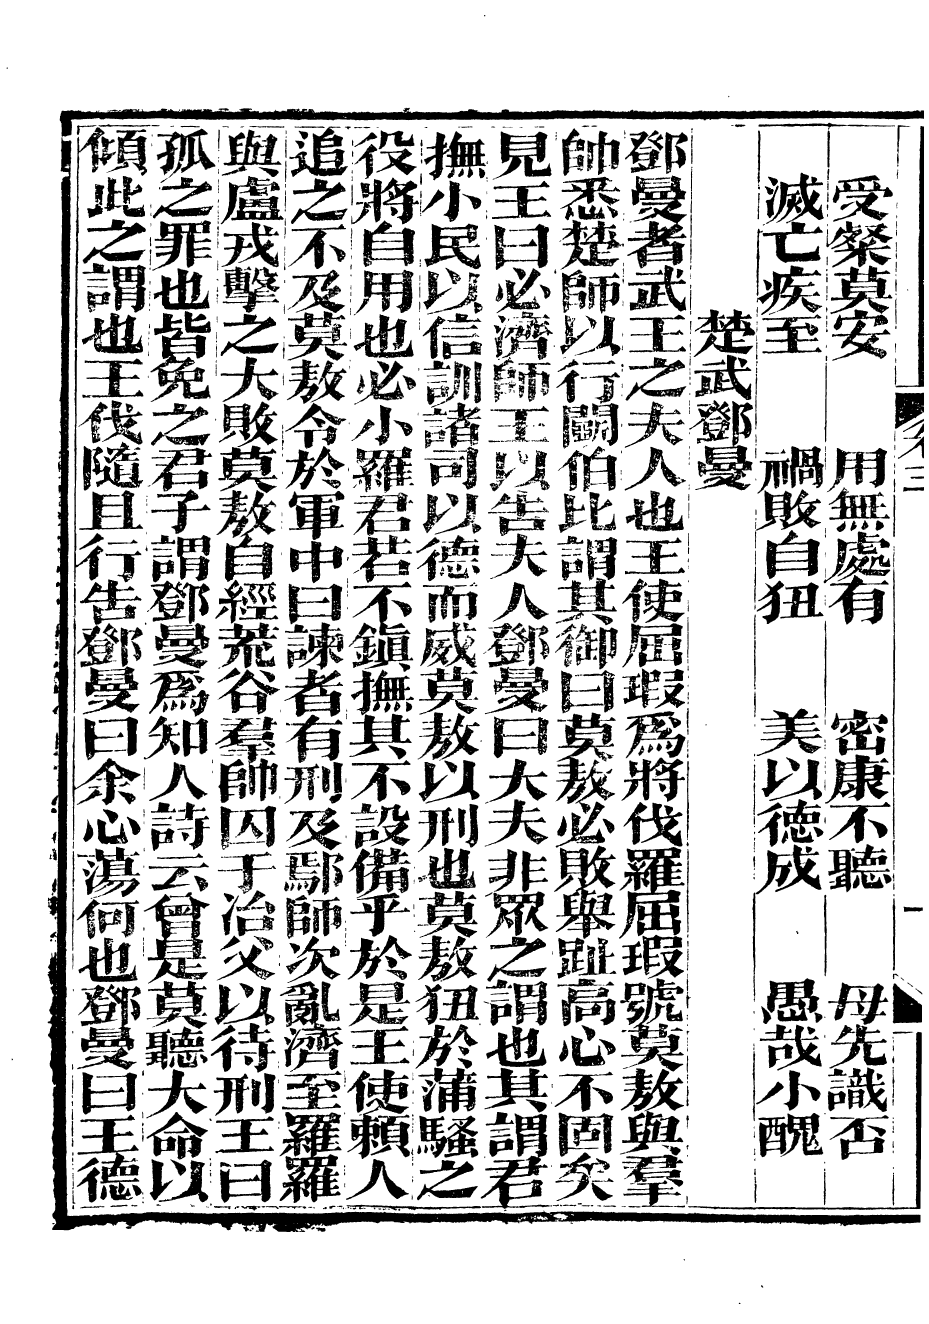 受粲莫安　用無處有　密康不聽　母先識否
滅亡疾至　禍敗自狃　美以德成　愚哉小醜
楚武鄧曼
鄧曼者武王之夫人也王使屈瑕爲將伐羅屈瑕號莫敖與羣
帥悉楚師以行鬭伯比謂其御曰莫敖必敗舉趾高心不固矣
見王曰必濟師王以告夫人鄧曼曰大夫非眾之謂也其謂君
撫小民以信訓諸司以德而威莫敖以刑也莫敖狃於蒲騷之
役將自用也必小羅君若不鎭撫其不設備乎於是王使賴人
追之不及莫敖令於軍中曰諫者有刑及鄢師次亂濟至羅羅
與盧戎擊之大敗莫敖自經荒谷羣帥囚于冶父以待刑王曰
孤之罪也皆免之君子謂鄧曼爲知人詩云曾是莫聽大命以
傾此之謂也王伐隨且行告鄧曼曰余心蕩何也鄧曼曰王德